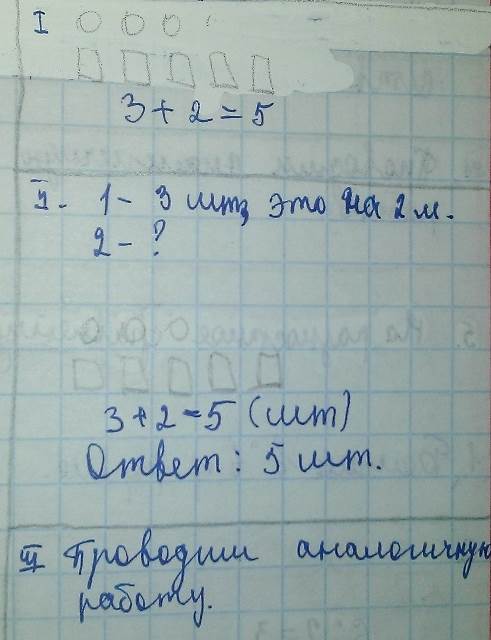 I
3 + 2 = 5
II. 1 - 3 шт, это на 2 м.
2 - ?
3 + 2 = 5 (шт)
Ответ: 5 шт.
III Проводим аналогичную
работу.